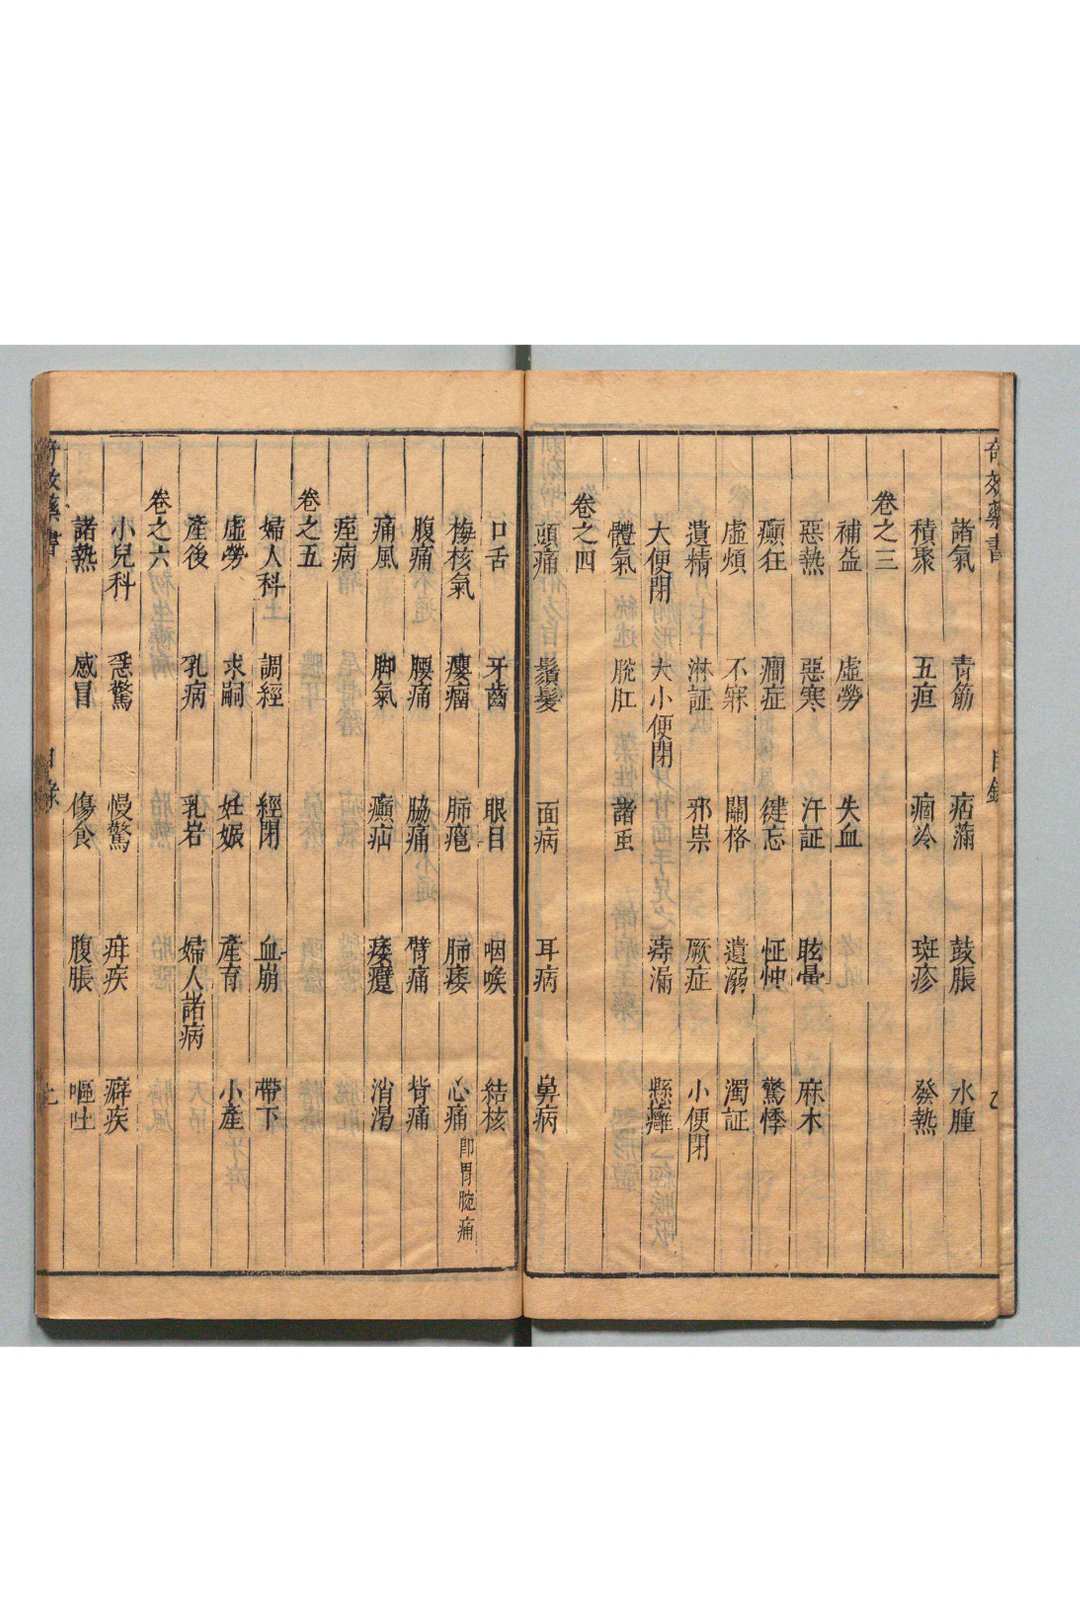 諸氣 青筋 痞滿 鼓脹 水腫
積聚 五疸 痼冷 斑疹 發熱
卷之三
補益 虛勞 失血
惡熱 惡寒 汗証 眩暈 麻木
癲狂 癇症 健忘 怔忡 驚悸
虛煩 不寐 關格 遺溺 濁証
遺精 淋証 邪祟 厥症 小便閉
大便閉 大小便閉 痔漏 懸癰
體氣 脫肛 諸虫
卷之四
頭痛 鬚髮 面病 耳病 鼻病
口舌 牙齒 眼目 咽喉 結核
梅核氣 癭瘤 肺癰 肺痿 心痛 即胃脘痛
腹痛 腰痛 脇痛 臂痛 背痛
痛風 脚氣 㿗疝 痿躄 消渴
痓病
卷之五
婦人科 調經 經閉 血崩 帶下
虛勞 求嗣 妊娠 產育 小產
產後 乳病 乳岩 婦人諸病
卷之六
小兒科 急驚 慢驚 疳疾 癖疾
諸熱 感冒 傷食 腹脹 嘔吐